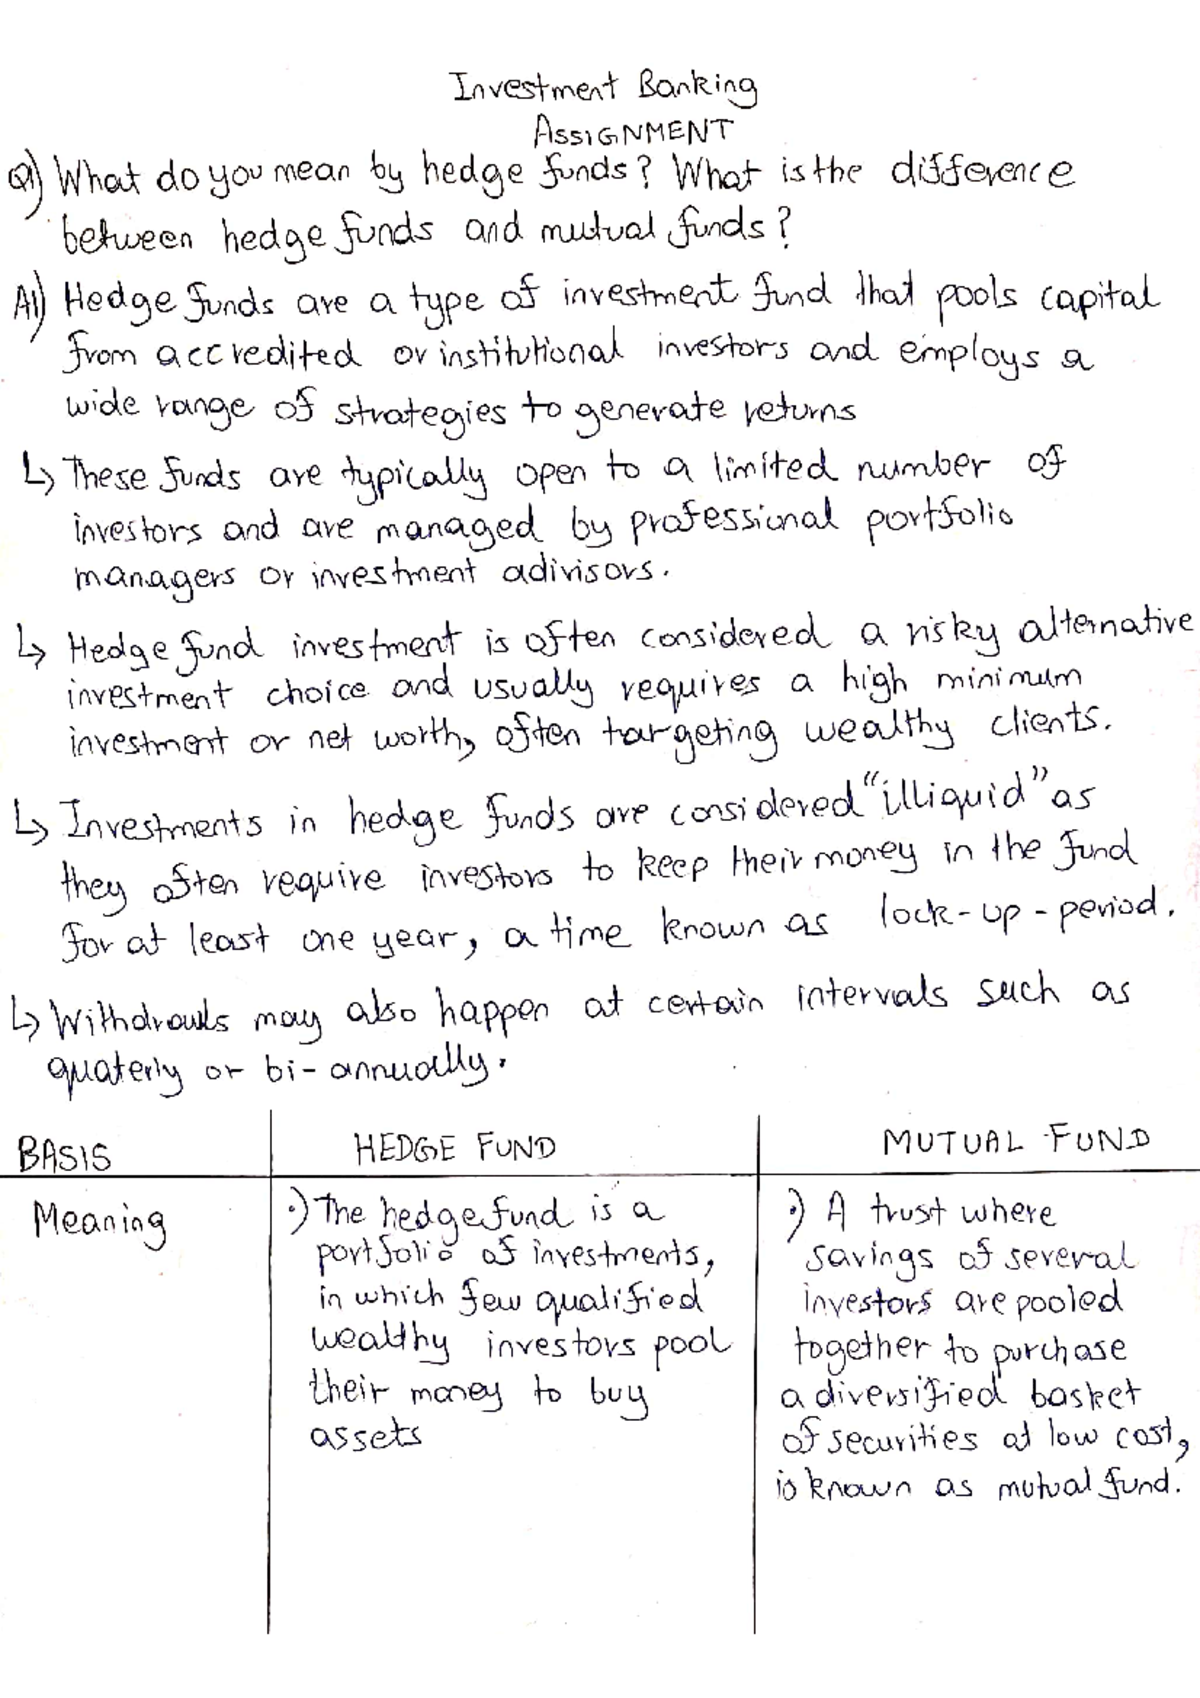 Investment Banking
ASSIGNMENT
Q1) What do you mean by hedge funds? What is the difference
between hedge funds and mutual funds?
A1) Hedge funds are a type of investment fund that pools capital
from accredited or institutional investors and employs a
wide range of strategies to generate returns
↳ These funds are typically open to a limited number of
investors and are managed by professional portfolio
managers or investment adivisors.
↳ Hedge fund investment is often considered a risky alternative
investment choice and usually requires a high minimum
investment or net worth, often targeting wealthy clients.
↳ Investments in hedge funds are considered "illiquid" as
they often require investors to keep their money in the fund
for at least one year, a time known as lock-up-period.
↳ Withdrawls may also happen at certain intervals such as
quaterly or bi-annually.
BASIS HEDGE FUND MUTUAL FUND
Meaning
•) The hedge fund is a
portfolio of investments,
in which few qualified
wealthy investors pool
their money to buy
assets
•) A trust where
savings of several
investors are pooled
together to purchase
a diversified basket
of securities at low cost,
is known as mutual fund.